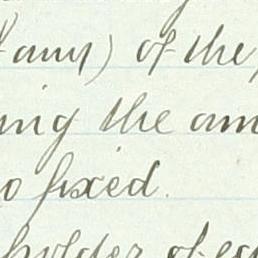 any) of the
ing the am
o fixed.
holder of ea